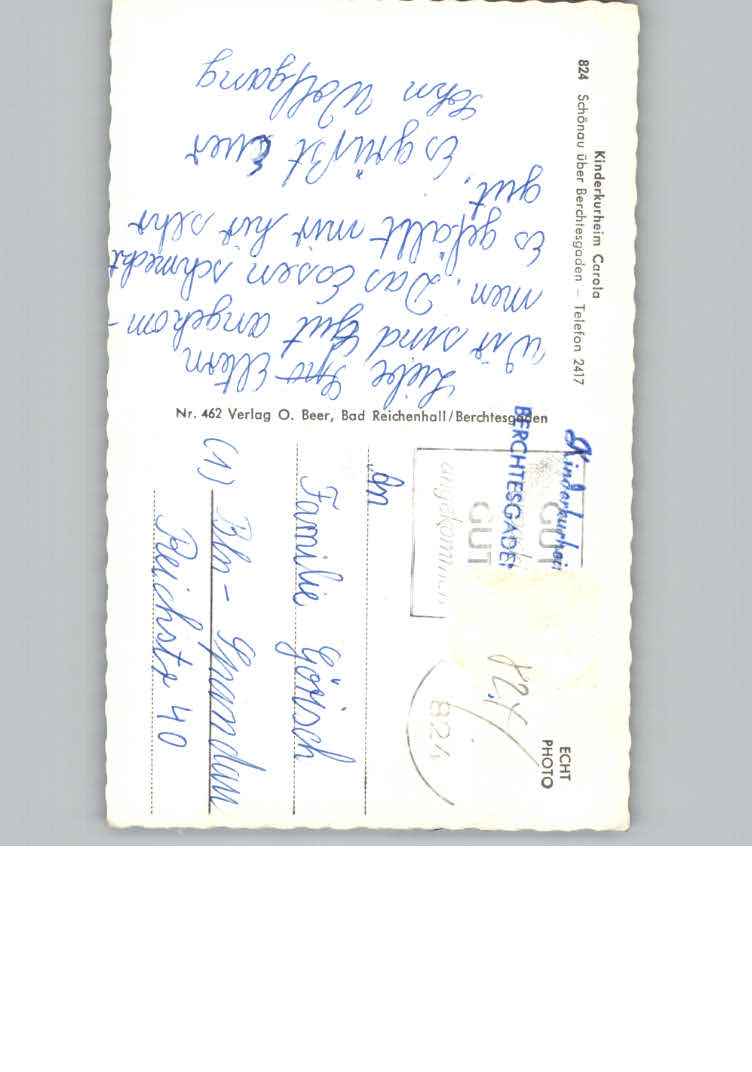 Kinderkurheim Carola
824 Schönau über Berchtesgaden – Telefon 2417
Liebe Eltern
Wir sind Gut angekom-
men. Das Essen schmeckt
Es gefällt mir hir sehr
gut.
Es grüßt Euer
Sohn Wolfgang
Nr. 462 Verlag O. Beer, Bad Reichenhall/Berchtesgaden
Kinderkurheim
BERCHTESGADEN
GUT
GUT
angekommen
824
824
ECHT
PHOTO
An
Familie Görisch
(1) Bln - Spandau
Reichstr 40